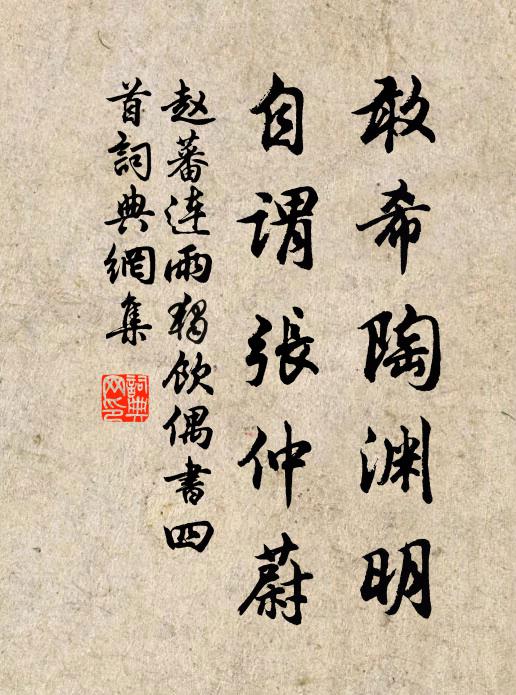 敢希陶渊明
自谓張仲蔚
赵蕃连雨獨飲偶書四
首詞典網集
詞典
网印